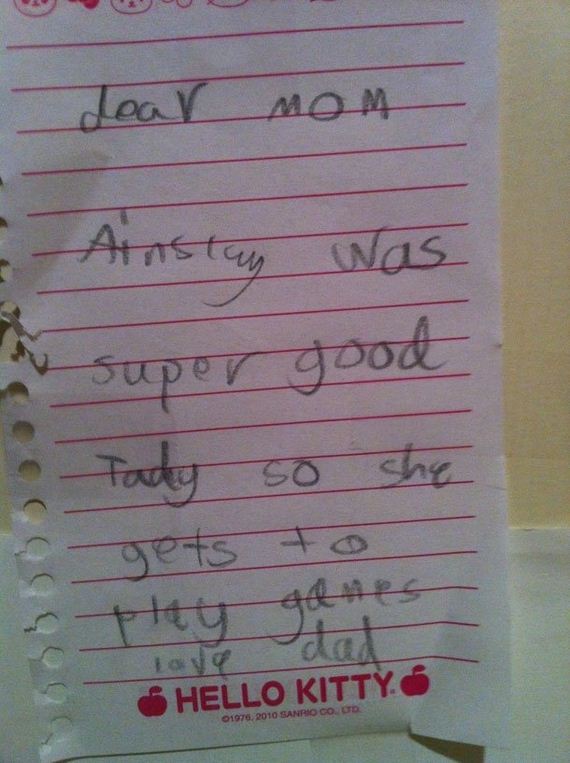 dear MOM
Ainslay was
super good
Tady so she
gets to
play games
love dad
HELLO KITTY®
©1976, 2010 SANRIO CO., LTD.